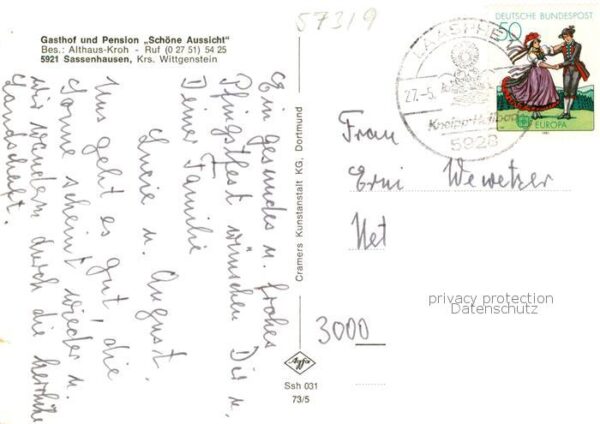 57319
Gasthof und Pension „Schöne Aussicht"
Bes.: Althaus-Kroh - Ruf (0 27 51) 54 25
5921 Sassenhausen, Krs. Wittgenstein
Ein gesundes u. frohes
Pfingstfest wünschen Dir u.
Deiner Familie
Lucie u. August.
Uns geht es gut die
Sonne scheint wieder u.
wir wandern durch die herrliche
Landschaft.
Cramers Kunstanstalt KG, Dortmund
Agfa
Ssh 031
73/5
DEUTSCHE BUNDESPOST
50
EUROPA
1981
LAASPHE
27.-5.
Kneipp-Heilbad
5928
Frau
Erni Wewetzer
3000
privacy protection
Datenschutz